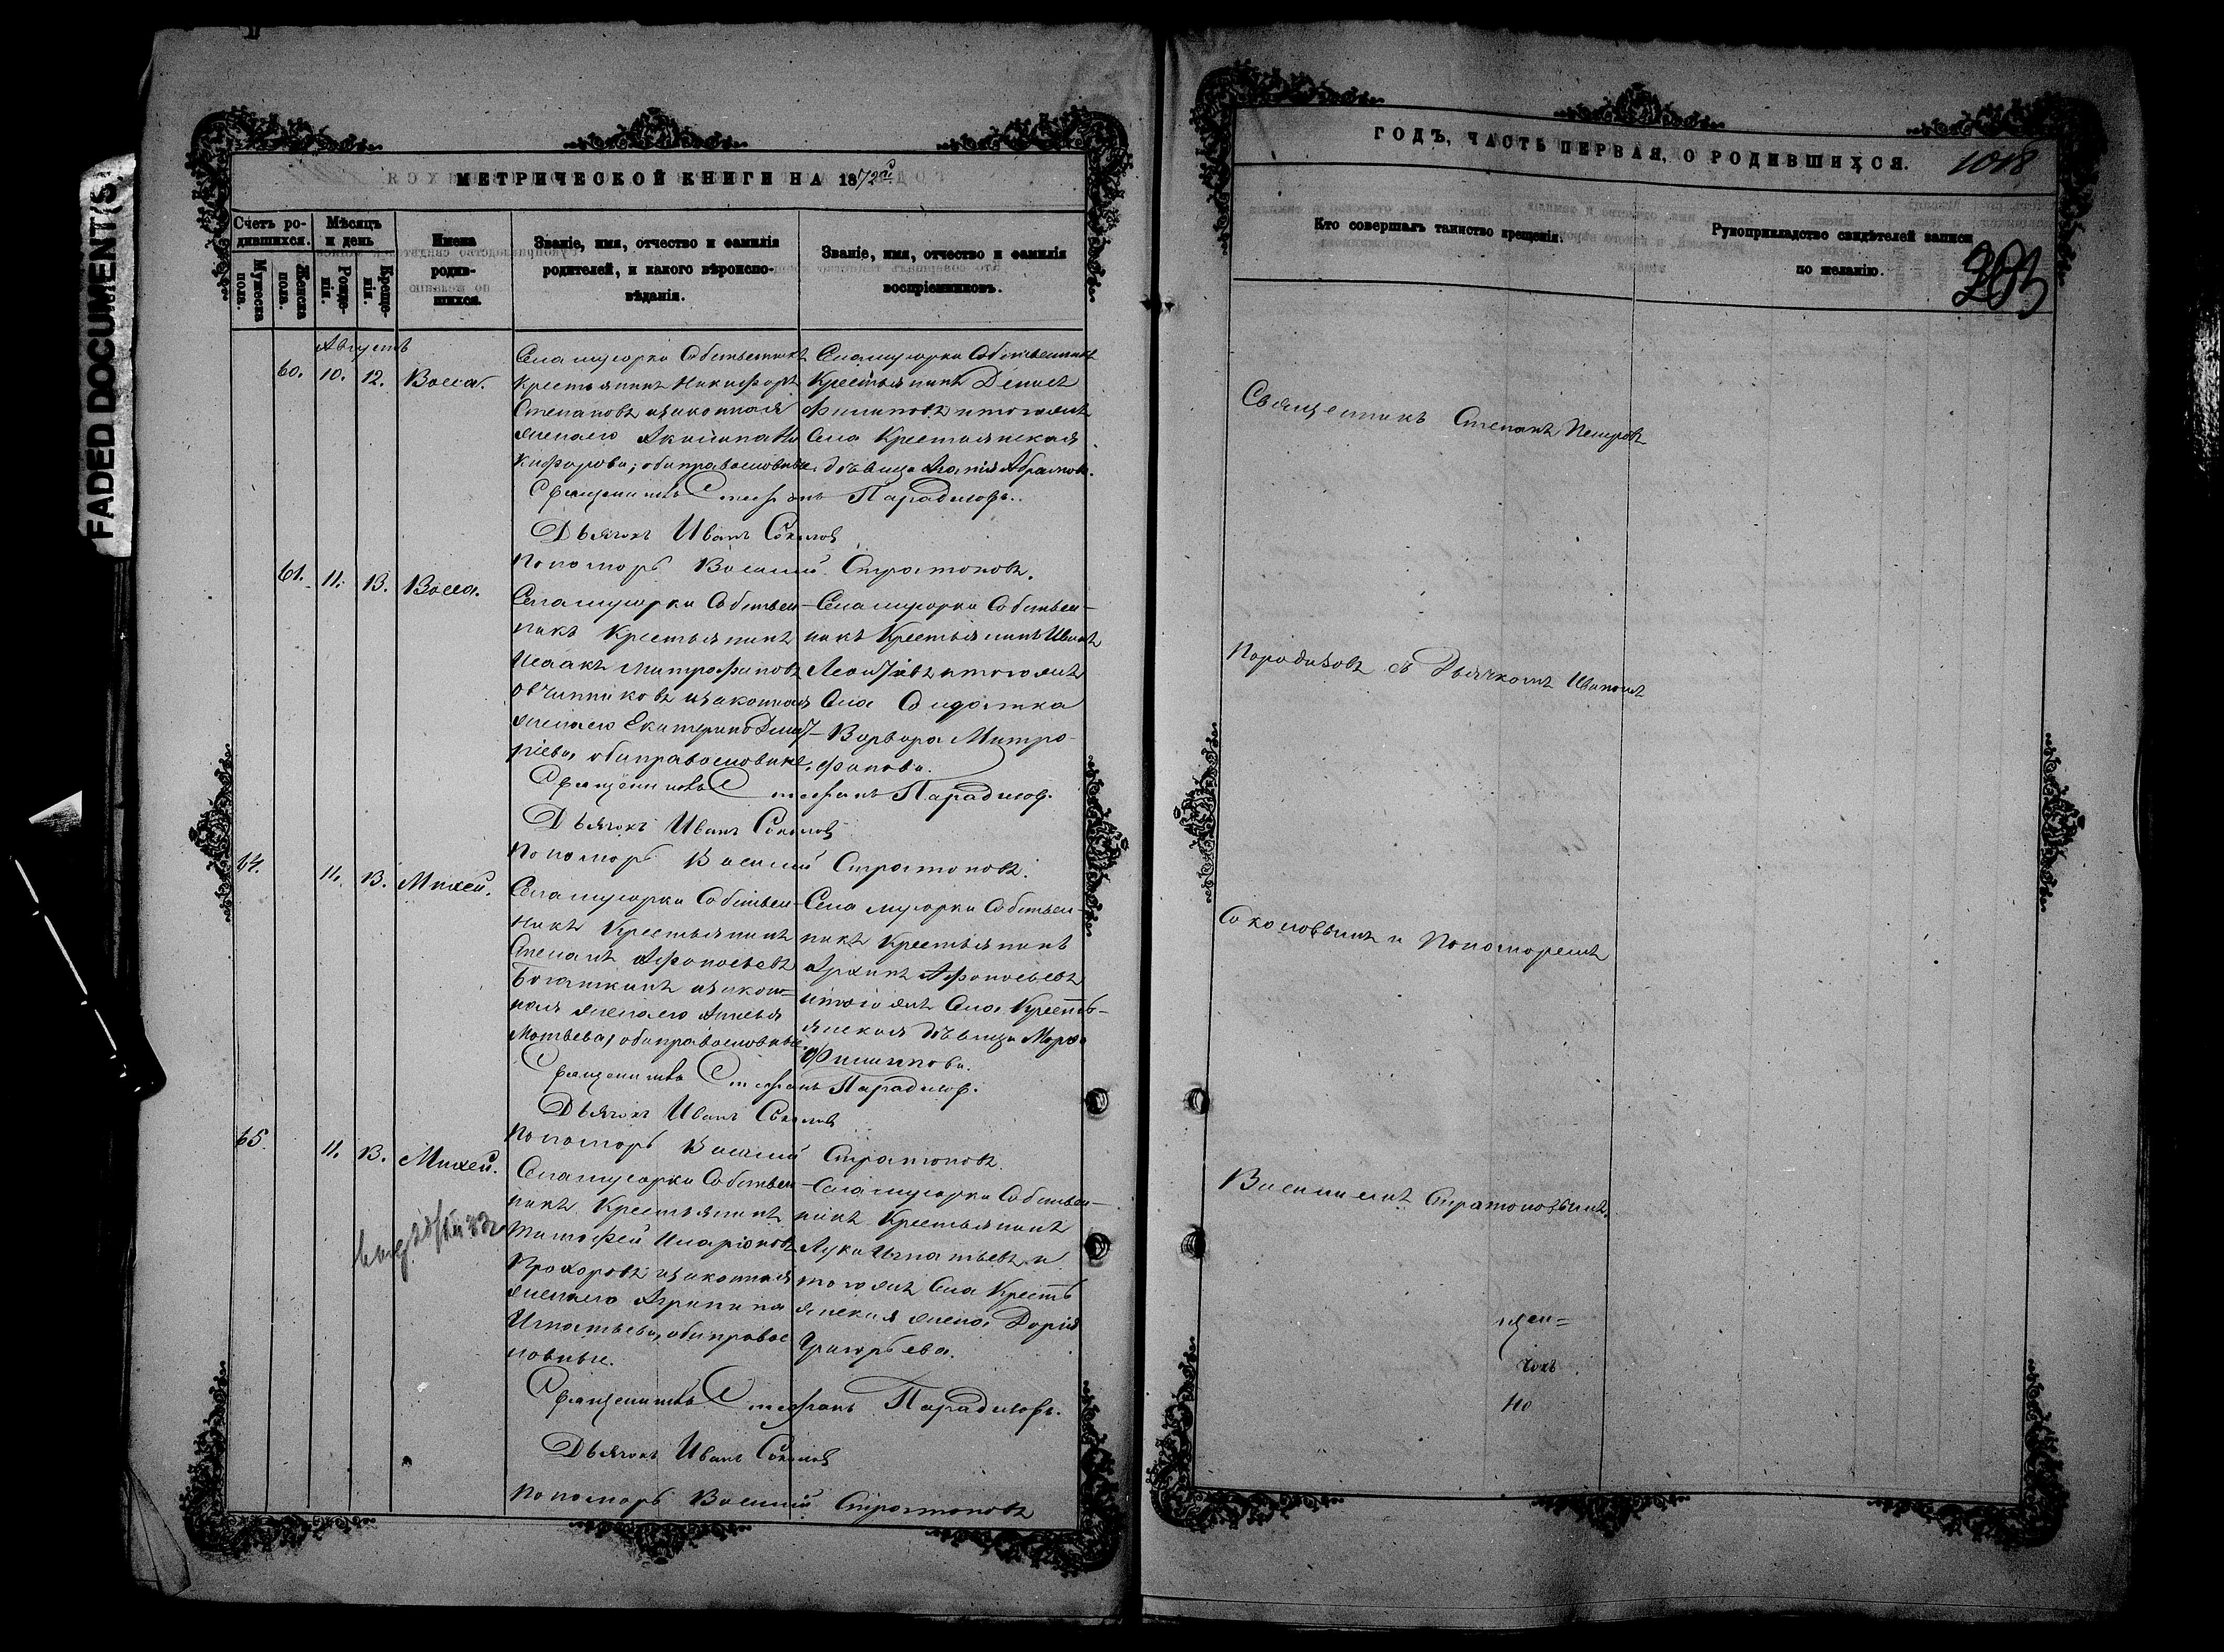 FADED DOCUMENT(S)
МЕТРИЧЕСКОЙ КНИГИ НА 1872й
Счетъ родившихся.
Мужеска пола.
Женска пола.
Мѣсяцъ и день
Рожденія.
Крещенія.
Имена родившихся.
Званіе, имя, отчество и фамилія родителей, и какого вѣроисповѣданія.
Званіе, имя, отчество и фамилія воспріемниковъ.
Августъ
60. 10. 12. Васса.
Села Мусорки Собственникъ
Крестьянинъ Никифоръ
Степановъ и законная
жена его Акилина Ни
кифорова; оба православные.
Села Мусорки Собственникъ
Крестьянинъ Денисъ
Филиповъ и того жъ
Села Крестьянская
дѣвица Агапія Абрамова.
Священникъ Стефанъ Парадизовъ.
Дьячокъ Иванъ Соколовъ
Пономарь Василій Стратоновъ.
61. 11. 13. Васса.
Села Мусорки Собствен-
никъ Крестьянинъ
Исаакъ Митрофановъ
Овчинниковъ и законная
жена его Екатерина Дмит-
ріева, оба православные.
Села Мусорки Собствен-
никъ Крестьянинъ Иванъ
Леонтіевъ и того жъ
Села Солдатка
Варвара Митро-
фанова.
Священникъ Стефанъ Парадизовъ.
Дьячокъ Иванъ Соколовъ
Пономарь Василій Стратоновъ.
64. 11. 13. Михей.
Села Мусорки Собствен-
никъ Крестьянинъ
Степанъ Афонасьевъ
законная
жена его
Матвева, оба православные.
Села Мусорки Собствен-
никъ Крестьянинъ
Архипъ Афонасьевъ
и того жъ Села Кресть-
янская дѣвица Марфа
Филипова.
Священникъ Стефанъ Парадизовъ.
Дьячокъ Иванъ Соколовъ
Пономарь Василій Стратоновъ.
65. 11. 13. Михей.
Села Мусорки Собствен-
никъ Крестьянинъ
Тимофей Иларіоновъ
Прохоровъ и законная
жена его Агрипина
Игнатьева, оба правос
лавные.
Села Мусорки Собствен-
никъ Крестьянинъ
Лука Игнатьевъ и
того жъ Села Кресть
янская жена Дарія
Григорьева.
Священникъ Стефанъ Парадизовъ.
Дьячокъ Иванъ Соколовъ
Пономарь Василій Стратоновъ
ГОДЪ, ЧАСТЬ ПЕРВАЯ, О РОДИВШИХСЯ.
1018
Кто совершалъ таинство крещенія.
Рукоприкладство свидѣтелей записи по желанію.
Священникъ Степанъ Петровъ
Парадизовъ съ Дьячкомъ Иваномъ
Соколовымъ и Пономаремъ
Василиемъ Стратоновымъ.
щен=
чокъ
но